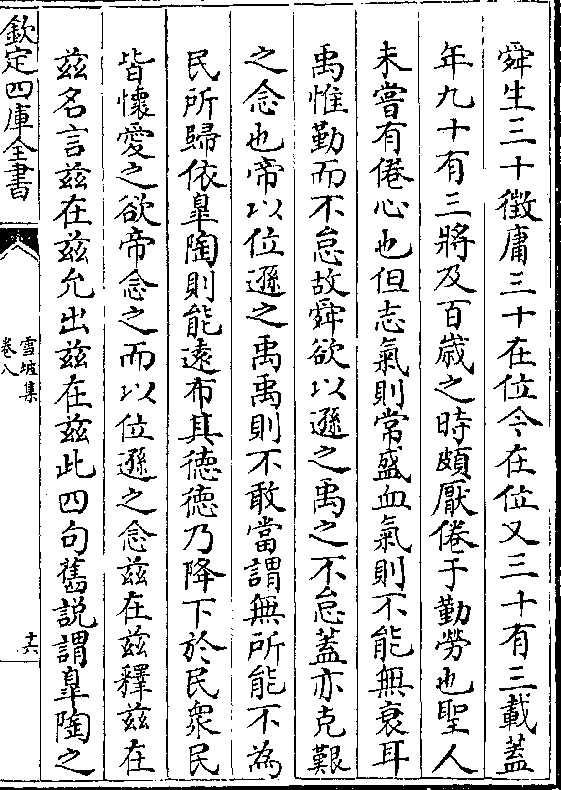 舜生三十徵庸三十在位今在位又三十有三載蓋
年九十有三將及百歲之時頗厭倦于勤勞也聖人
未嘗有倦心也但志氣則常盛血氣則不能無衰耳
禹惟勤而不怠故舜欲以遜之禹之不怠蓋亦克艱
之念也帝以位遜之禹禹則不敢當謂無所能不為
民所歸依臯陶則能遠布其德德乃降下於民衆民
皆懷愛之欲帝念之而以位遜之念兹在兹釋兹在
兹名言兹在兹允出兹在兹此四句舊説謂臯陶之
欽定四庫全書
雪坡集
卷八
十六